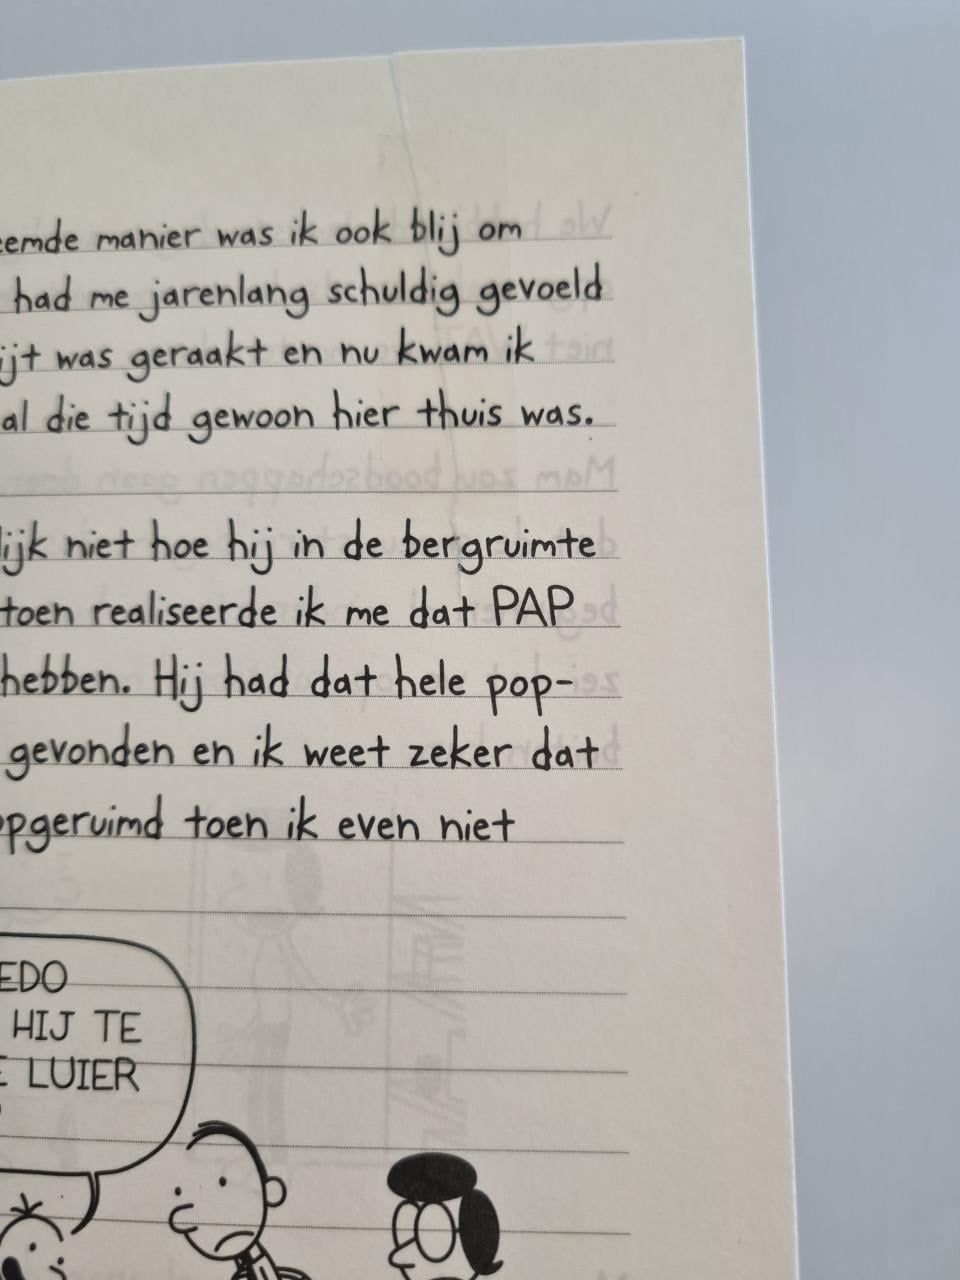 manier was ik ook blij om
had me jarenlang schuldig gevoeld
was geraakt en nu kwam ik
al die tijd gewoon hier thuis was.
niet hoe hij in de bergruimte
toen realiseerde ik me dat PAP
hebben. Hij had dat hele pop-
gevonden en ik weet zeker dat
toen ik even niet
HIJ TE
LUIER